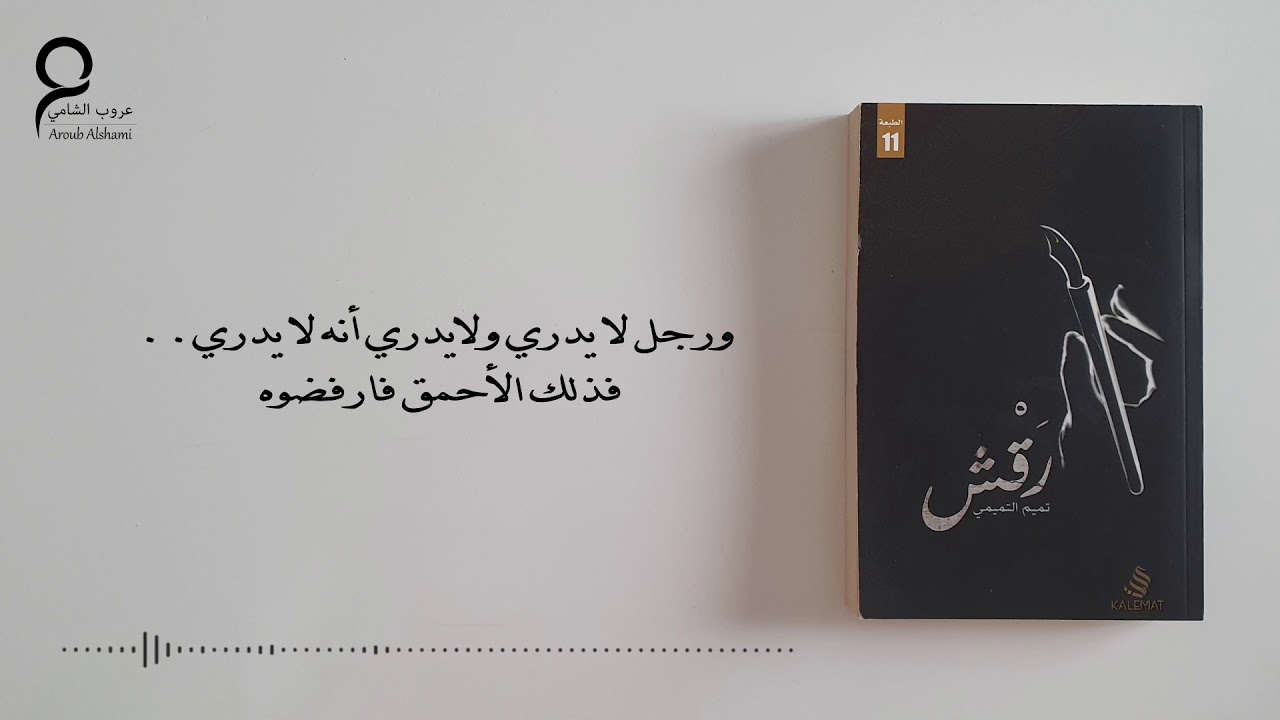 عروب الشامي
Aroub Alshami
ورجل لا يدري ولايدري أنه لا يدري . .
فذلك الأحمق فارفضوه
الطبعة
11
رَقْش
تميم التميمي
KALEMAT